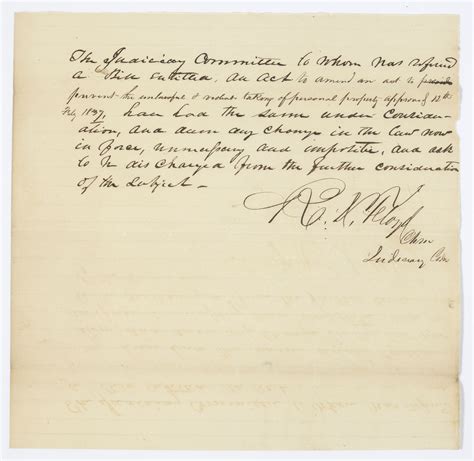 The Judiciary Committee to whom was refered
a Bill entitled, an act to amend an act to
prevent the unlawful & violent taking of personal property approved 12th
Feby 1837, have had the same under consider-
ation, and deem any change in the law now
in force, unnecessary and impolitic, and ask
to be discharged from the further consideration
of the subject –
R. Floyd
Chm
Judiciary Com